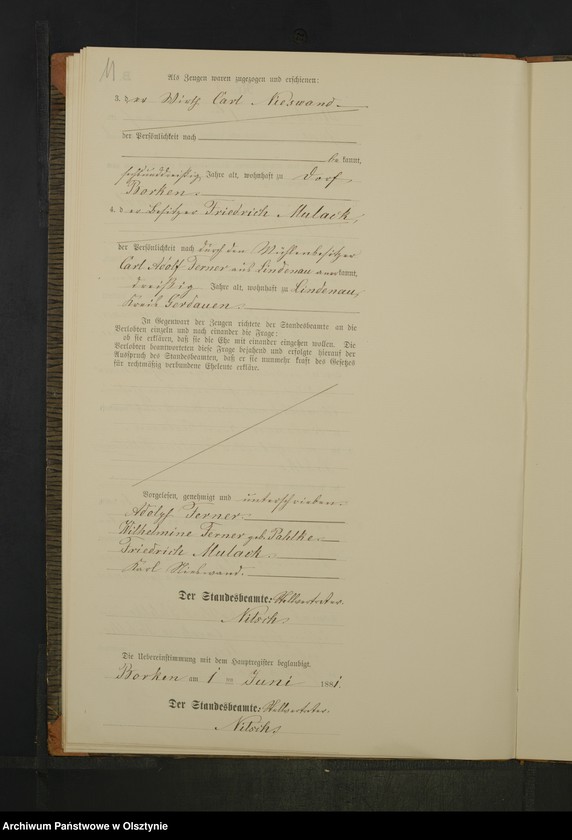 11
Als Zeugen waren zugezogen und erschienen:
3. der Wirth Carl Nieswand
der Persönlichkeit nach
be kannt,
sechsunddreißig Jahre alt, wohnhaft zu Dorf
Borken
4. der Besitzer Friedrich Mulack,
der Persönlichkeit nach durch den Mühlenbesitzer
Carl Adolf Ferner aus Lindenau anerkannt,
dreißig Jahre alt, wohnhaft zu Lindenau,
Kreis Gerdauen.
In Gegenwart der Zeugen richtete der Standesbeamte an die
Verlobten einzeln und nach einander die Frage:
ob sie erklären, daß sie die Ehe mit einander eingehen wollen. Die
Verlobten beantworteten diese Frage bejahend und erfolgte hierauf der
Ausspruch des Standesbeamten, daß er sie nunmehr kraft des Gesetzes
für rechtmäßig verbundene Eheleute erkläre.
Vorgelesen, genehmigt und unterschrieben.
Adolph Ferner
Wilhelmine Ferner geb. Pahlke
Friedrich Mulack
Karl Nieswand.
Der Standesbeamte: Stellvertreter.
Nitsch
Die Uebereinstimmung mit dem Hauptregister beglaubigt.
Borken am 1 ten Juni 1881.
Der Standesbeamte: Stellvertreter.
Nitsch
Archiwum Państwowe w Olsztynie